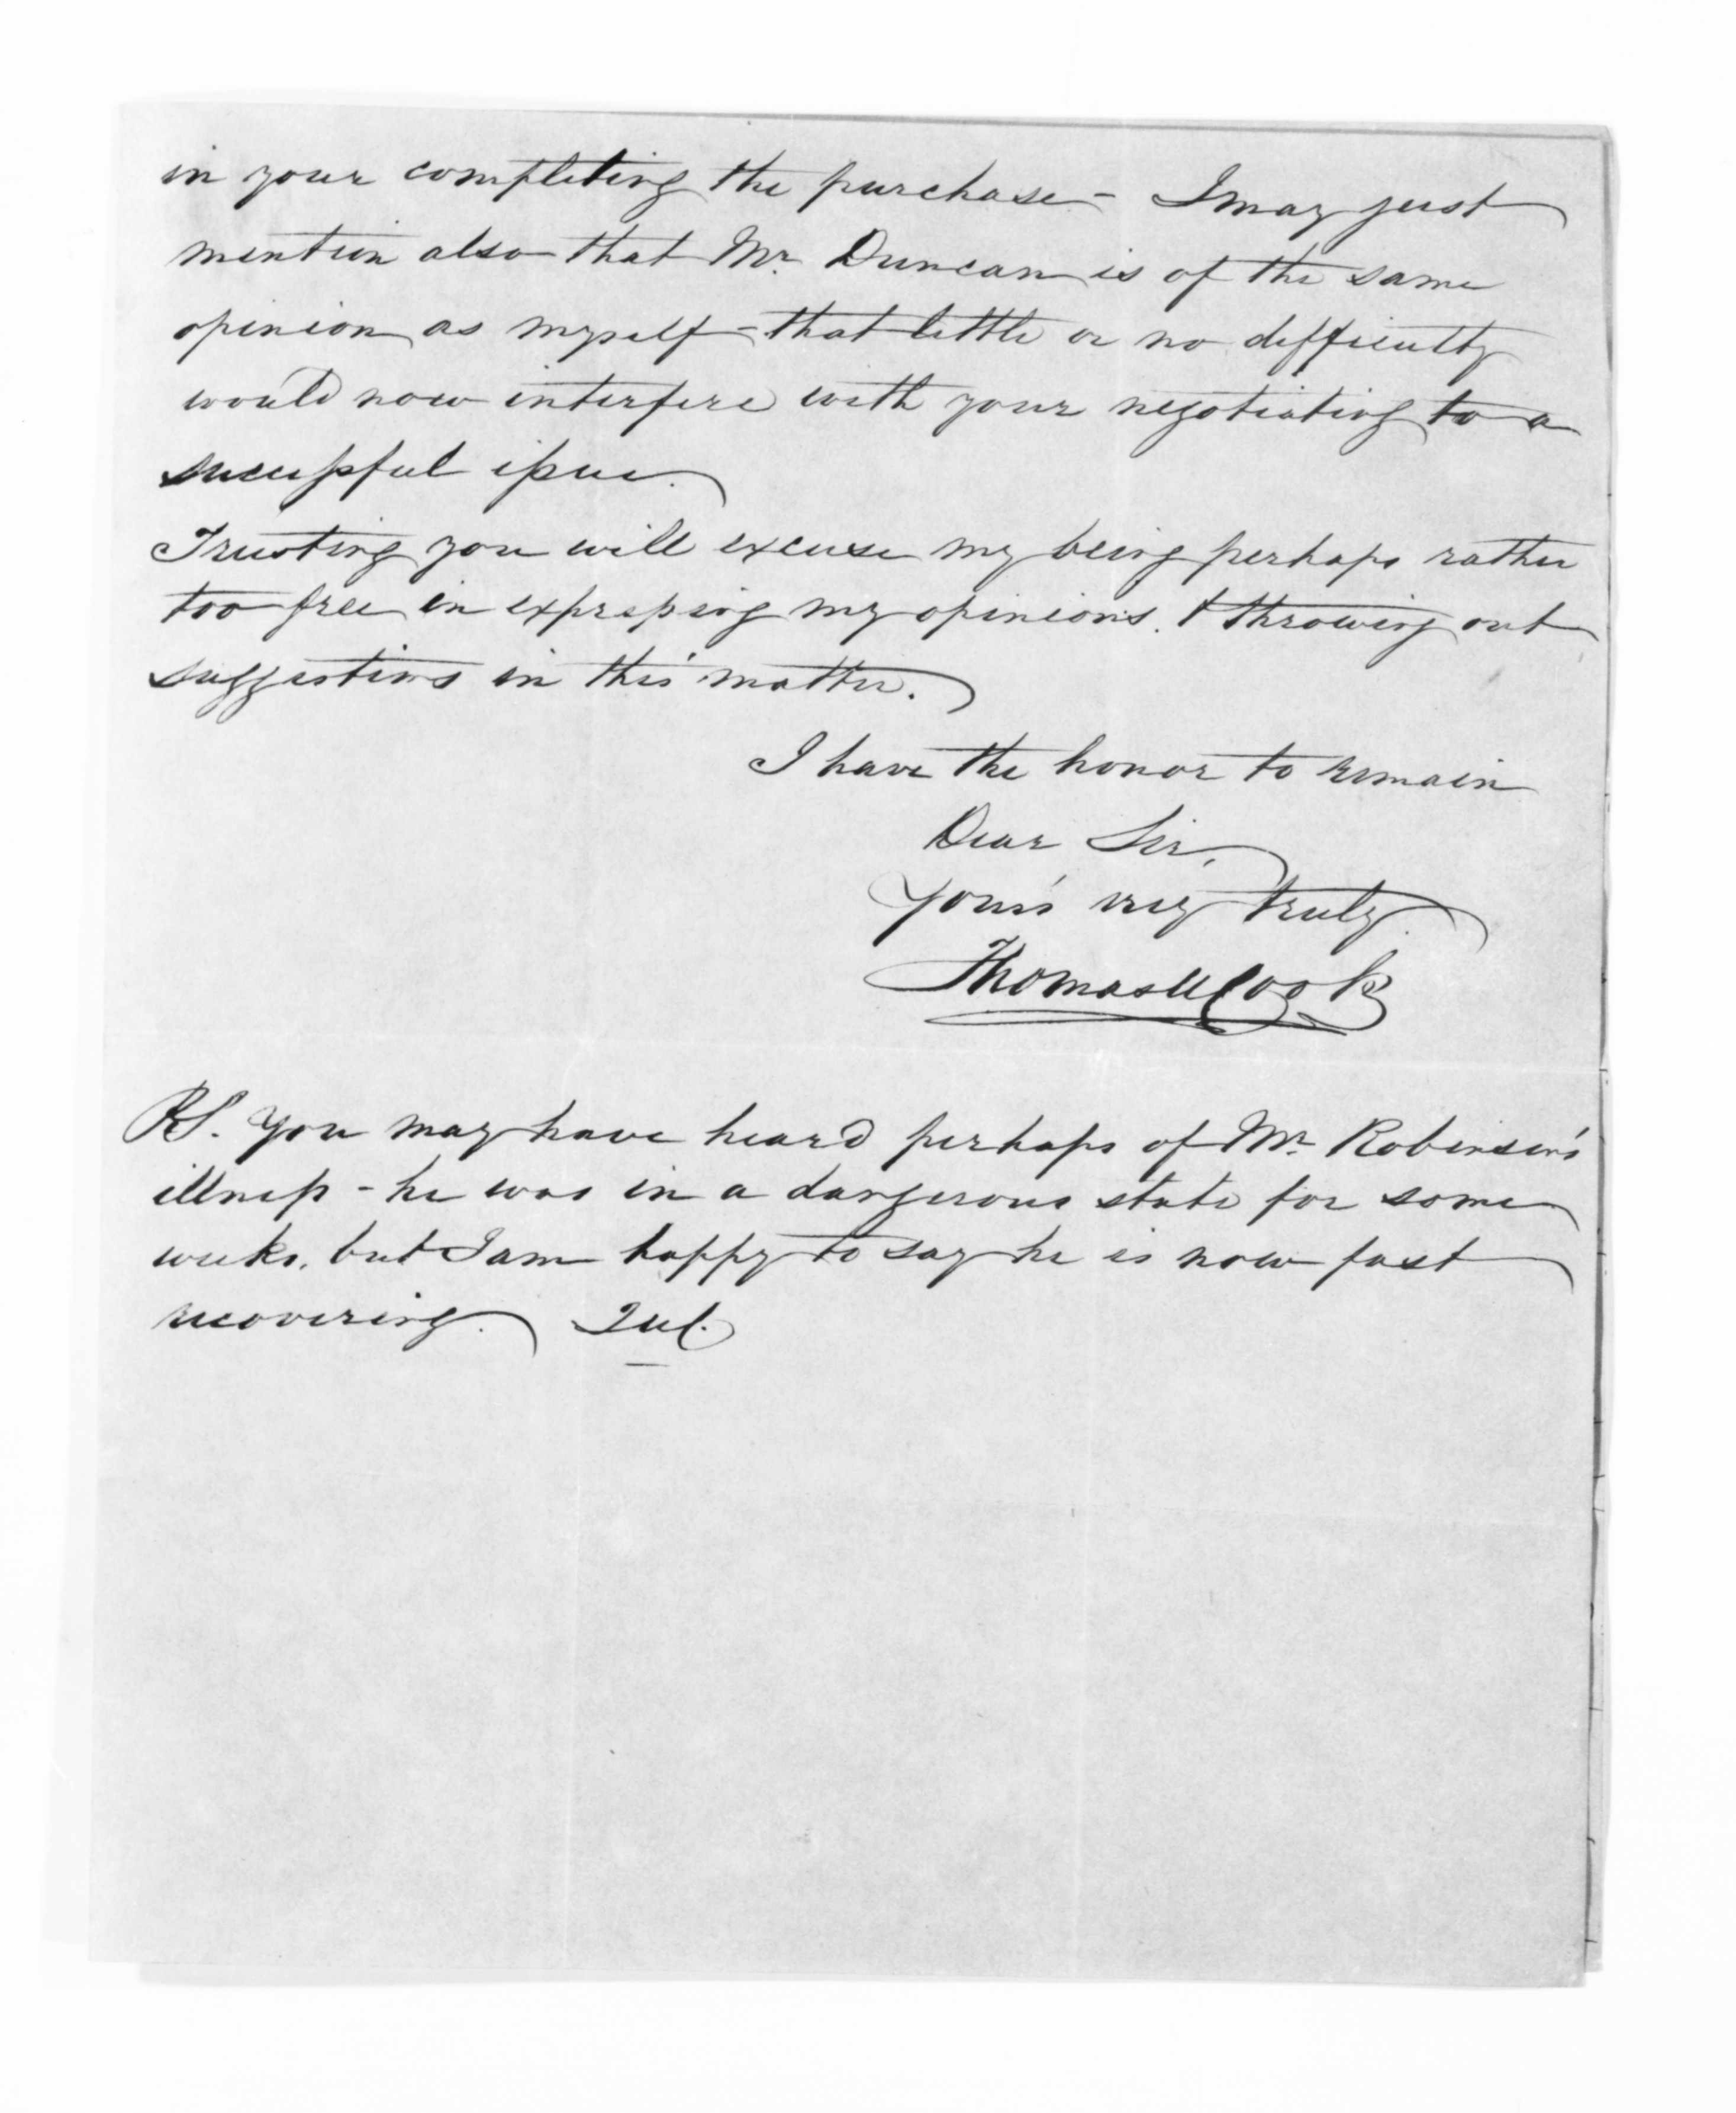 in your completing the purchase - I may just
mention also that Mr. Duncan is of the same
opinion as myself - that little or no difficulty
would now interfere with your negotiating to a
successful issue.
Trusting you will excuse my being perhaps rather
too free in expressing my opinions. & throwing out
suggestions in this matter.
I have the honor to remain
Dear Sir,
Your's very truly
Thomas W Cook
P.S. You may have heard perhaps of Mr. Robinson's
illness - he was in a dangerous state for some
weeks. but I am happy to say he is now fast
recovering. TWC.